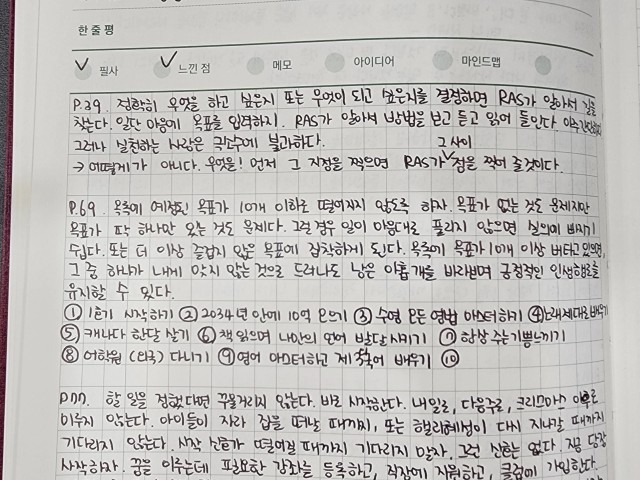 한 줄 평
필사 느낀 점 메모 아이디어 마인드맵
P.39. 정확히 무엇을 하고 싶은지 또는 무엇이 되고 싶은지를 결정하면 RAS가 알아서 길을
찾는다. 일단 마음에 목표를 입력하지. RAS가 알아서 방법을 보고 듣고 읽어 들인다. 아주 간단하다
그러나 실천하는 사람은 극소수에 불과하다.
그 사이
→ 어떻게가 아니다. 무엇을! 먼저 그 지점을 찍으면 RAS가 점을 찍어 줄것이다.
P.69. 목록에 예정된 목표가 10개 이하로 떨어지지 않도록 하자. 목표가 없는 것도 문제지만
목표가 딱 하나만 있는 것도 문제다. 그럴 경우 일이 마음대로 풀리지 않으면 실의에 빠지기
쉽다. 또는 더 이상 즐겁지 않은 목표에 집착하게 된다. 목록에 목표가 10개 이상 버티고 있으면,
그 중 하나가 내게 맞지 않는 것으로 드러나도 남은 아홉 개를 바라보며 긍정적인 인생행로를
유지할 수 있다.
① 1호기 시작하기 ② 2034년 안에 10억 모으기 ③ 수영 모든 영법 마스터하기 ④ 배우기
⑤ 캐나다 한달 살기 ⑥ 책 읽으며 나만의 언어 발달시키기 ⑦ 항상 주는 기쁨 느끼기
⑧ 어학원 (외국) 다니기 ⑨ 영어 마스터하고 제2외국어 배우기 ⑩
P.77. 할 일을 정했다면 꾸물거리지 않는다. 바로 시작한다. 내일로, 다음주로, 크리스마스 이후로
미루지 않는다. 아이들이 자라 집을 떠날 때까지, 또는 핼리혜성이 다시 지나갈 때까지
기다리지 않는다. 시작 신호가 떨어질 때까지 기다리지 말자. 그런 신호는 없다. 지금 당장
시작하자. 꿈을 이루는데 필요한 강좌를 등록하고, 직장에 지원하고, 클럽에 가입한다.